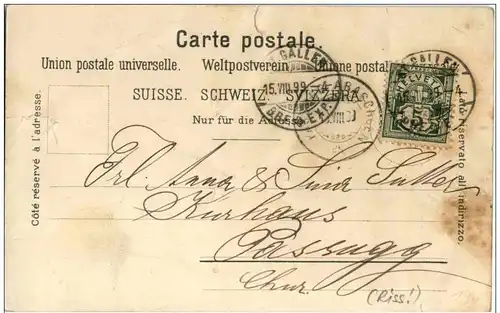 Carte postale.
Union postale universelle. Weltpostverein. Unione postale
SUISSE. SCHWEIZ. SVIZZERA.
Nur für die Adresse.
Côté réservé à l'adresse.
Lato riservato all'indirizzo.
GALLEN
15.VIII.99
HELVETIA
5
Frl. Anna & Lina Sutter
Kurhaus
Passugg
Chur.
(Riss!)